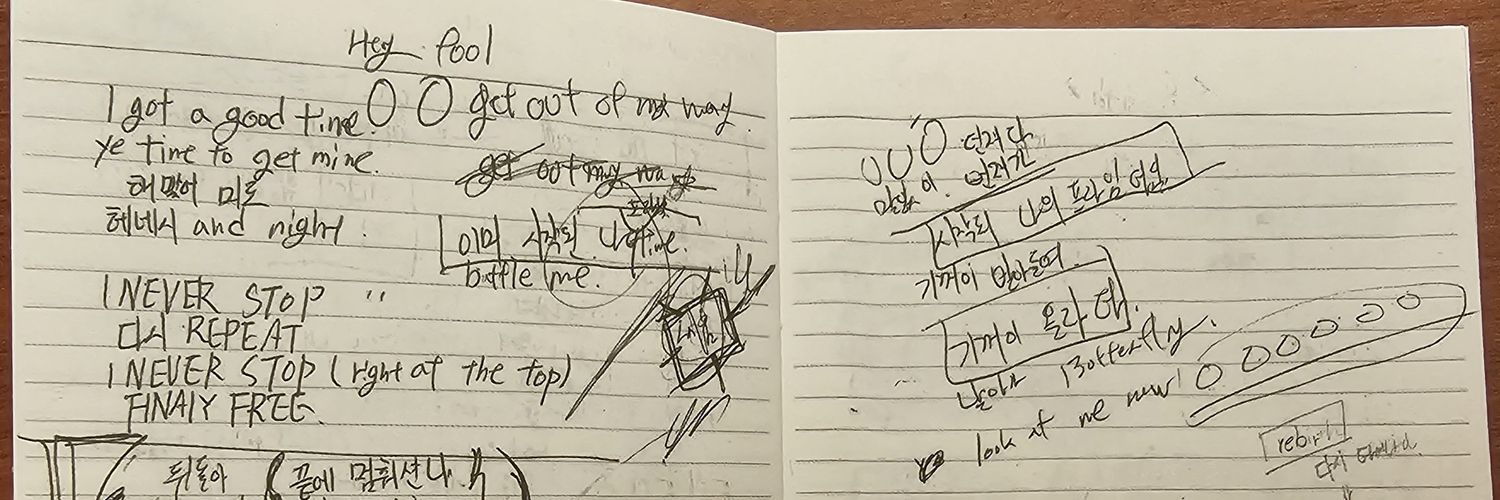 Hey fool
I got a good time. O O get out of my way.
ye time to get mine.
get out my way
해 맞어 미로
헤네시 and night.
이미 시작된 나 time.
battle me.
I NEVER STOP "
다시 REPEAT
I NEVER STOP (right at the top)
FINALY FREE.
뒤돌아
끝에 멈춰선 나
O 던져답
이. 던져진
시작된 나의 프라임 타임
기꺼이 받아들여.
기꺼이 올라 타.
날아가 Butterfly.
look at me now! O O O O O O
rebirth
다시